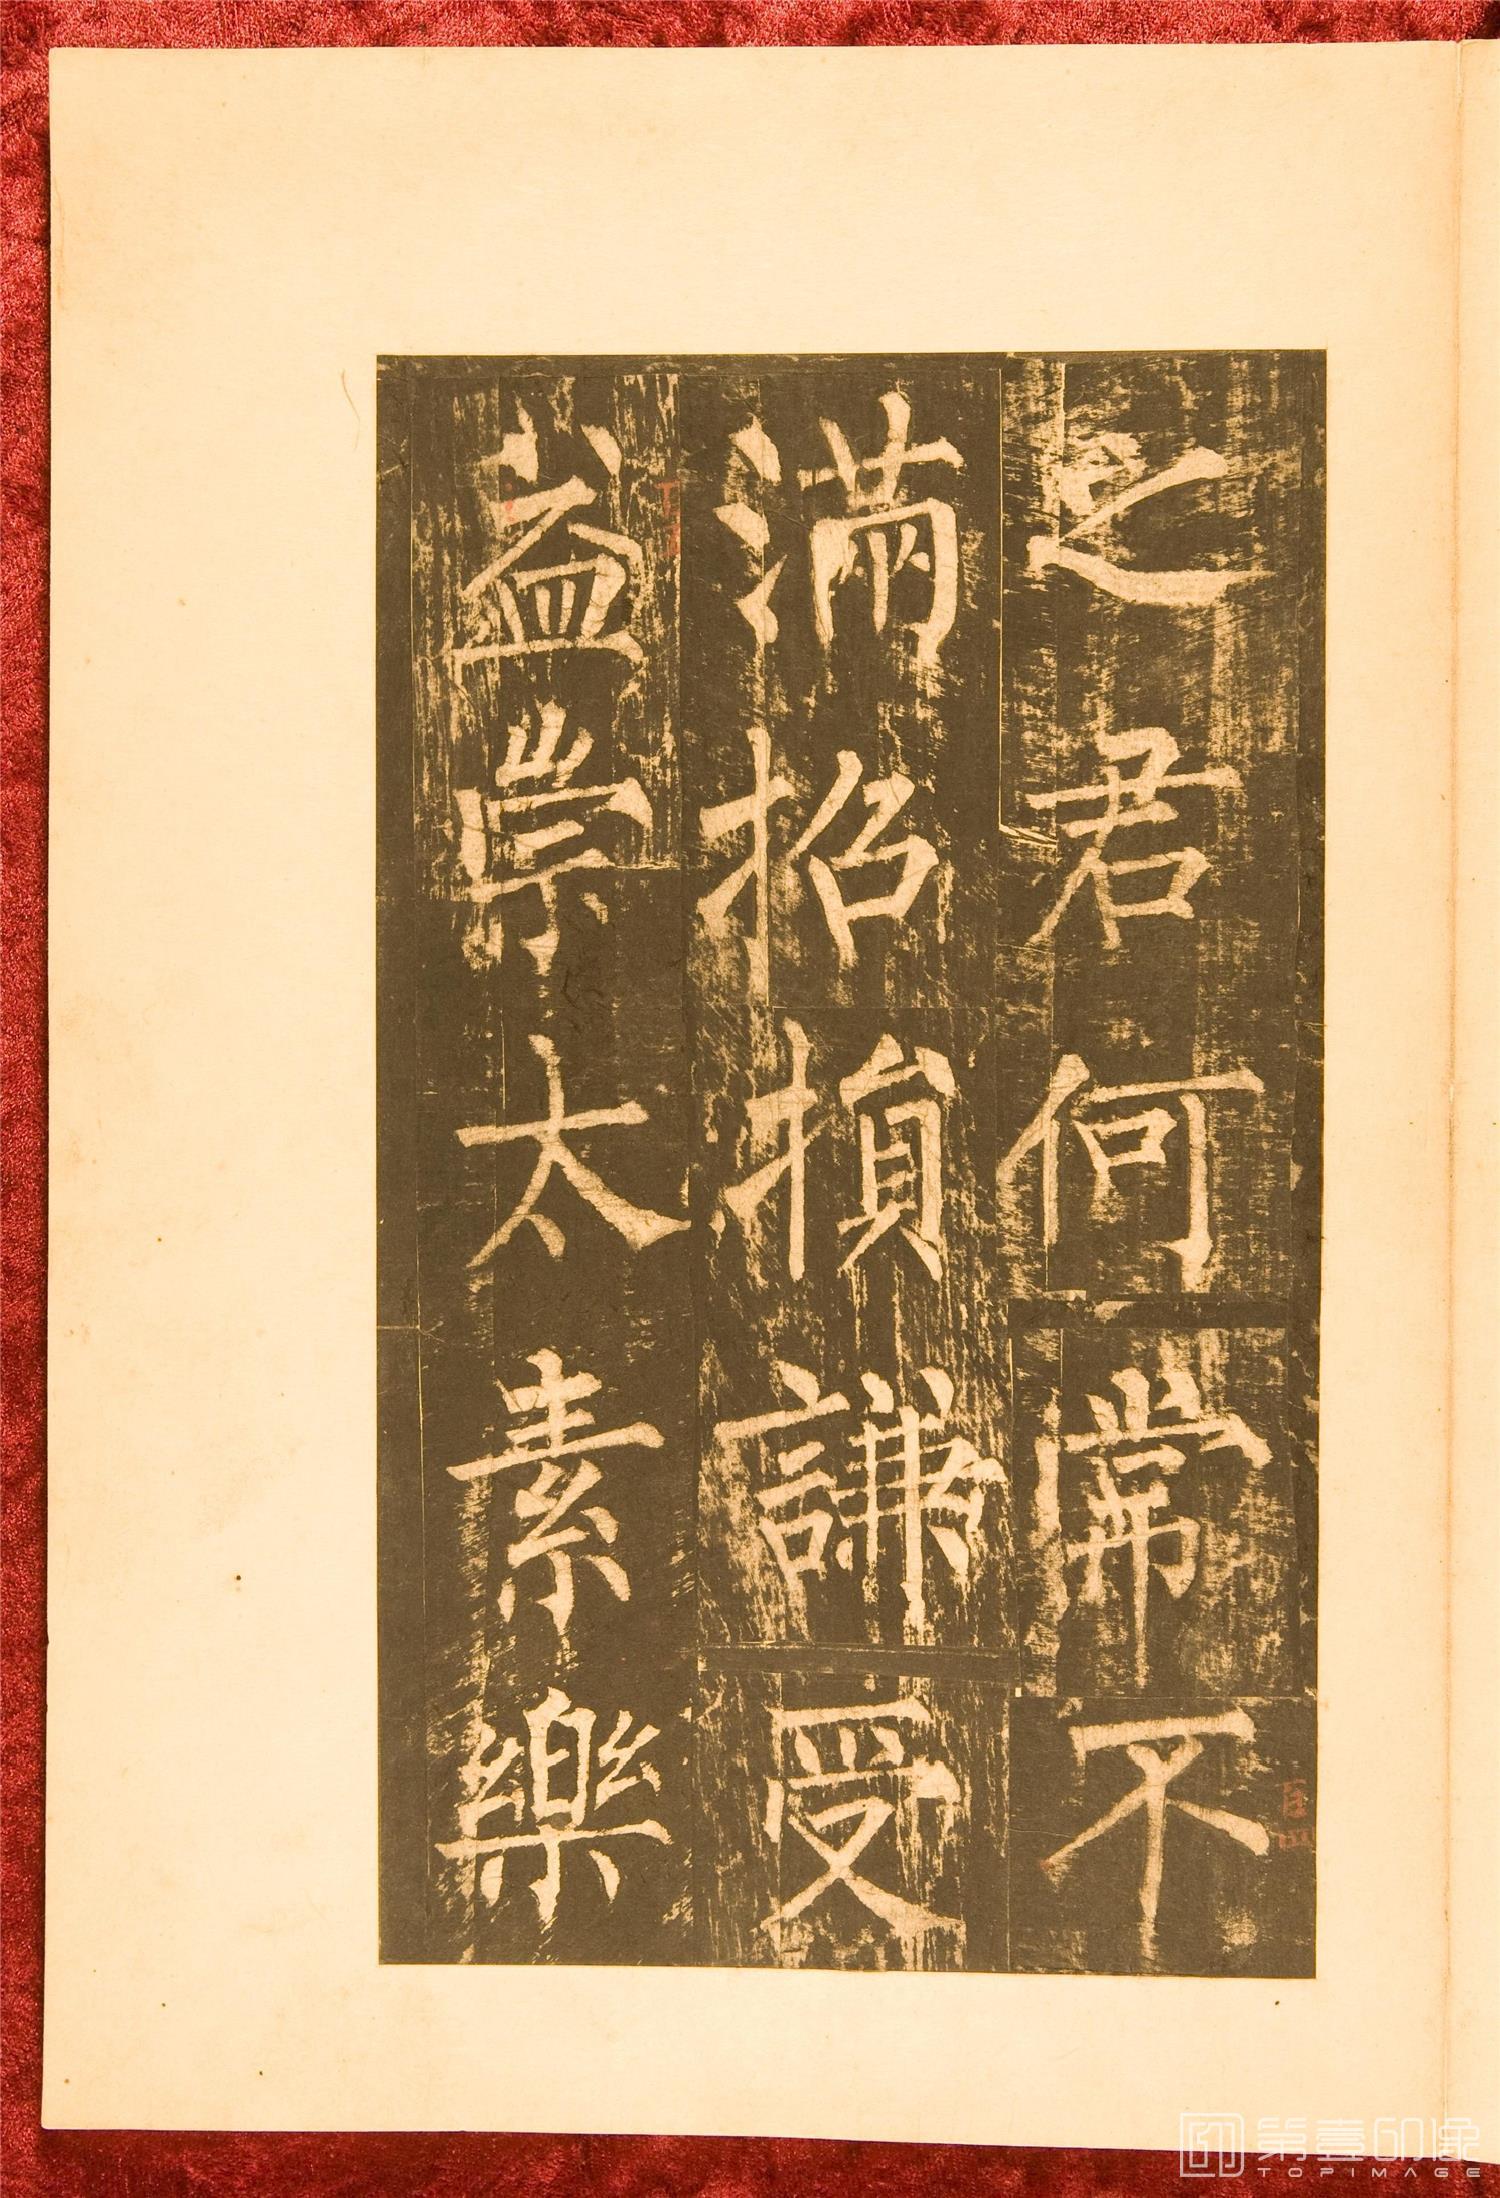 之君何常不
满招損謙受
益崇太素樂
第壹印象
TOPIMAGE